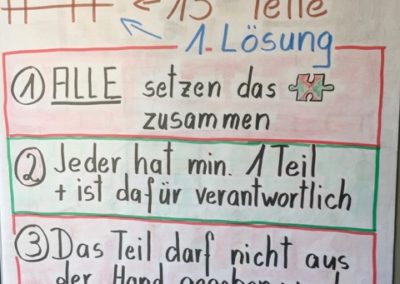 ← 15 Teile
1 Lösung
① ALLE setzen das
zusammen
② Jeder hat min. 1 Teil
+ ist dafür verantwortlich
③ Das Teil darf nicht aus
der Hand gegeben